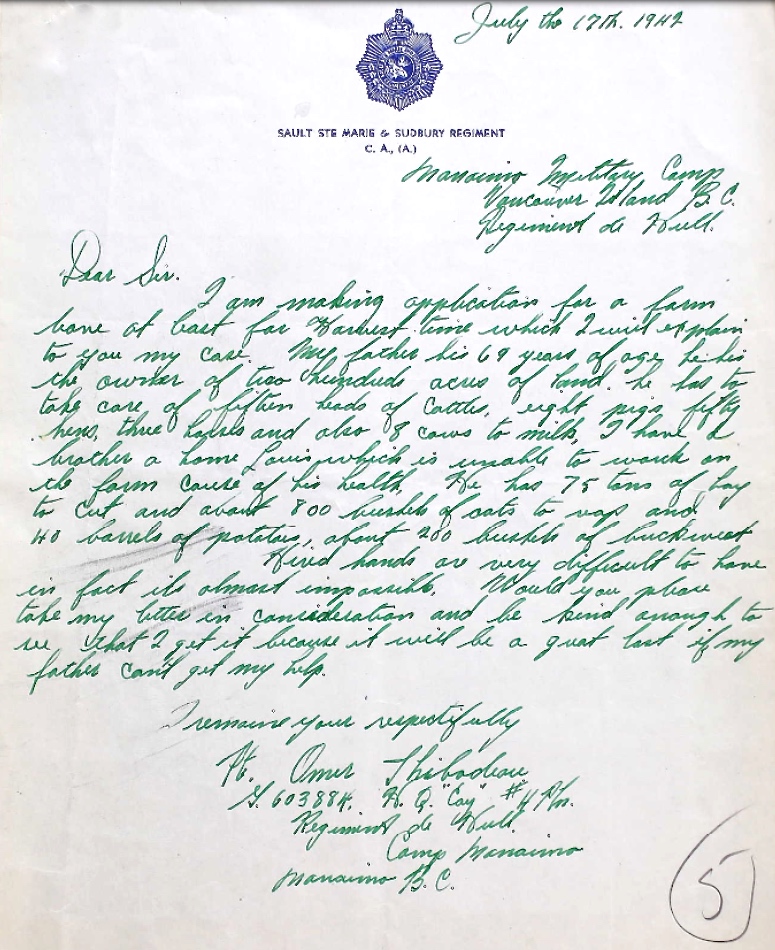 July the 17th. 1942
SAULT STE MARIE & SUDBURY REGIMENT
C. A., (A.)
Nanaimo Military Camp
Vancouver Island B.C.
Regiment de Hull.
Dear Sir.
I am making application for a farm
leave at least for Harvest time which I will explain
to you my case. My father his 69 years of age he his
the owner of two hundreds acres of land. he has to
take care of fifteen heads of cattles, eight pigs, fifty
hens, three horses and also 8 cows to milk, I have a
brother a home Louis which is unable to work on
the farm cause of his health, He has 75 tons of hay
to cut and about 800 bushels of oats to and
40 barrels of potatoes, about 200 bushels of buckweet
Hired hands are very difficult to have
in fact its almost impossible. Would you please
take my letter in consideration and be kind anough to
see that I get it because it will be a great lost if my
father can't get my help.
I remaine your respectifully
Pt. Omer Thibodeau
G. 603884. H. Q. "Coy" #4 Pln.
Regiment de Hull.
Camp Nanaimo
Nanaimo B.C.
5